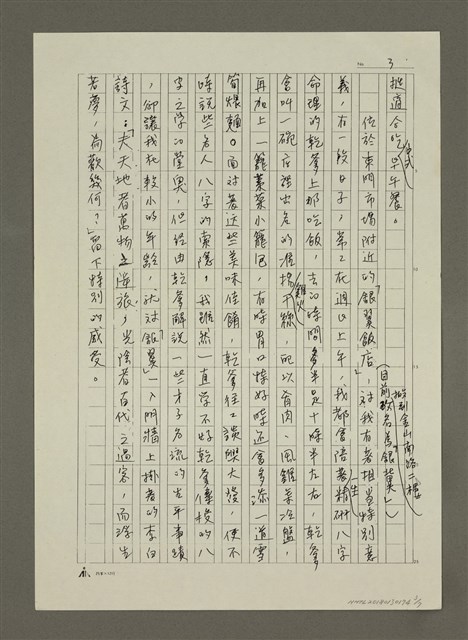 No. 3
挺適合吃中式早午餐。
位於東門市場附近的「銀翼飯店」,對我有着相當特別意
(目前改名美銀翼)
搬到金山南路二樓
義,在一段日子,常常在週日上午,我都會陪著一生精研八字
命理的乾爹上那吃飯,去的時間多半是十點半左右,乾爹
會叫一碗店裡出名的雞火淮揚干絲,配以肴肉、風雞等冷盤,
再加上一籠蒸菜小籠包,有時胃口特好時還會多添一道雪
筍煨麵。面對著這些美味佳餚,乾爹往往談興大發,便不
時說些名人八字的索隱,我雖然一直學不好乾爹傳授的八
字之學的堂奧,但經由乾爹解說一些才子名流的生平事蹟
,卻讓我在較小的年齡,就對「銀翼」一入門牆上掛着的李白
詩文:「夫天地者萬物之逆旅,光陰者百代之過客,而浮生
若夢,為歡幾何?」留下特別的感受。